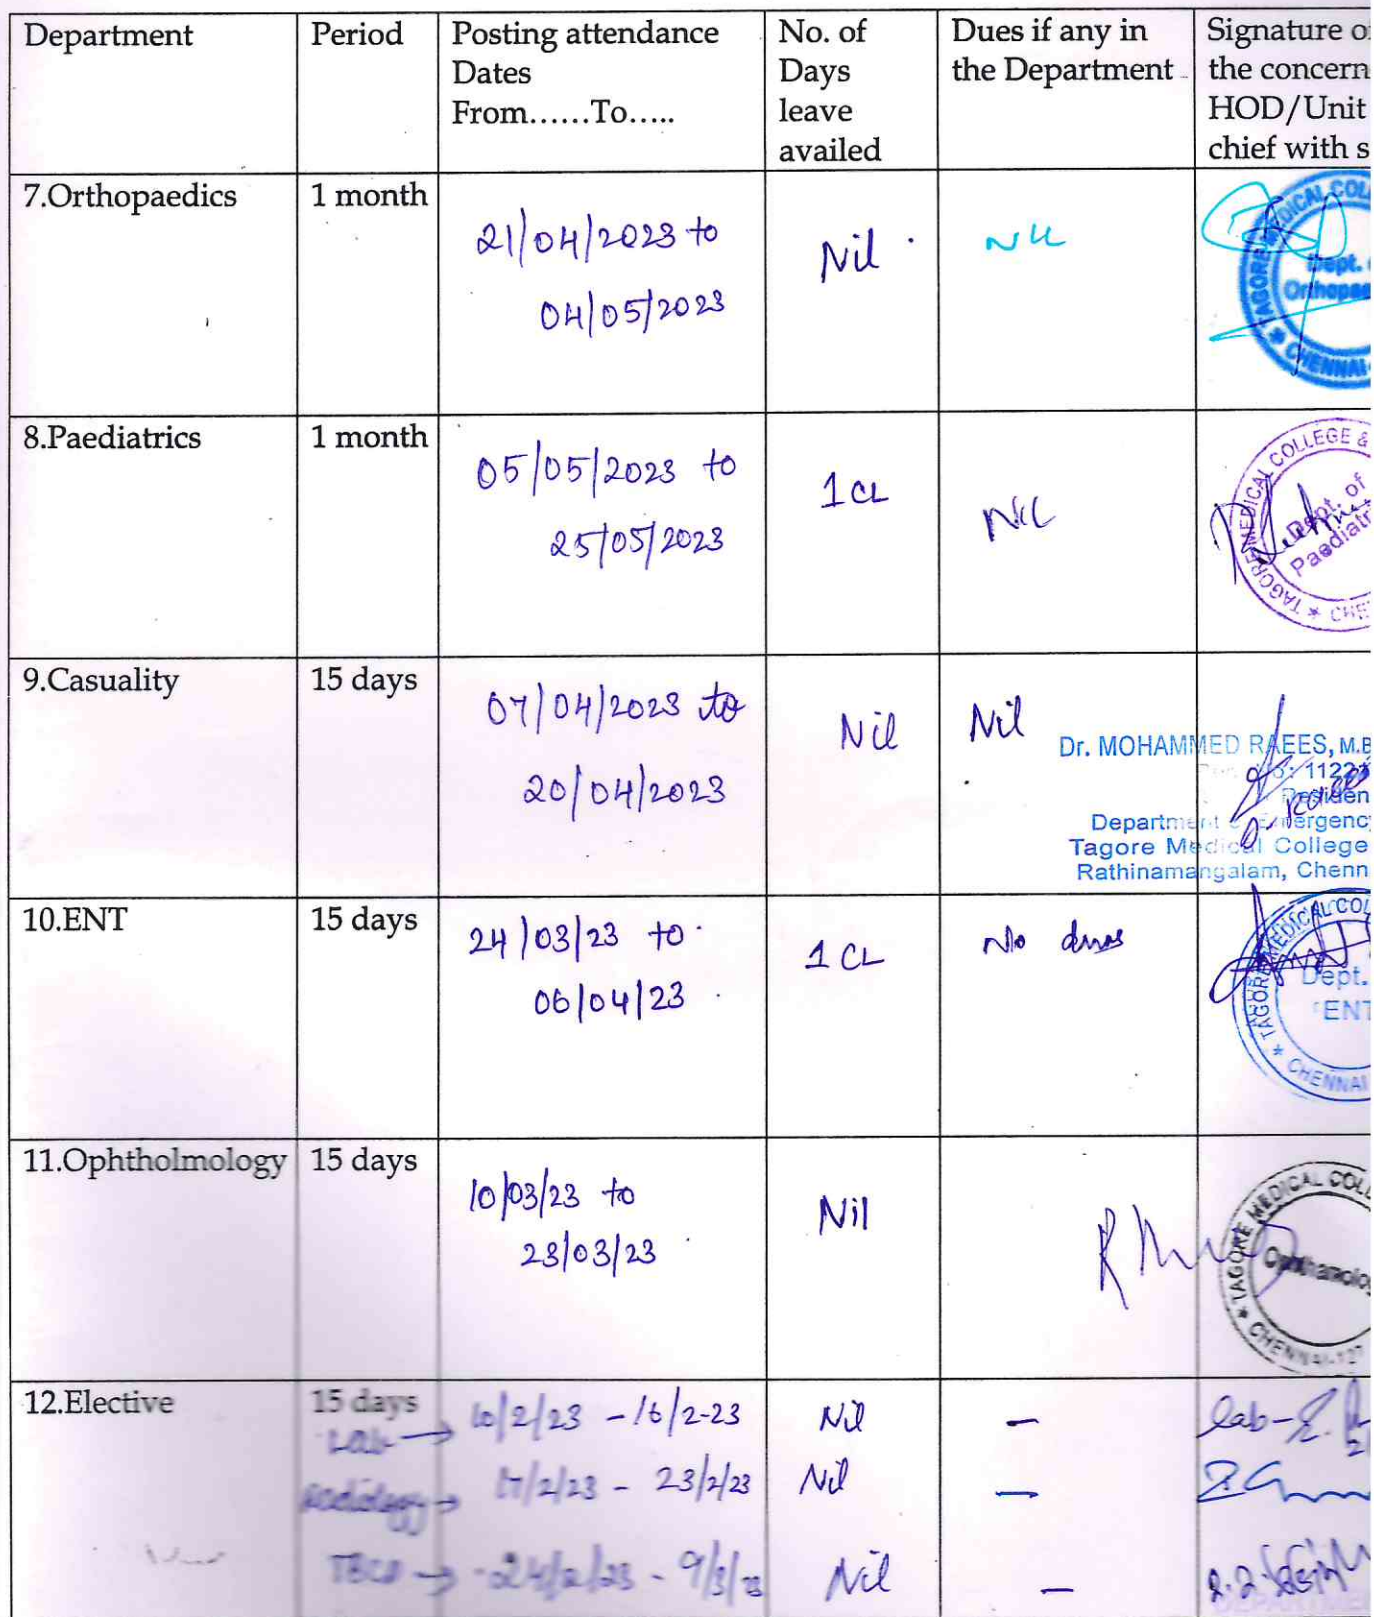 Department Period Posting attendance Dates From......To..... No. of Days leave availed Dues if any in the Department Signature o the concern HOD/Unit chief with s
7.Orthopaedics 1 month 21/04/2023 to 04/05/2023 Nil Nil
TAGORE MEDICAL COL
Dept.
Orthopae
CHENNAI
8.Paediatrics 1 month 05/05/2023 to 25/05/2023 1 CL Nil
TAGORE MEDICAL COLLEGE &
Dept. of
Paediatri
CHE
9.Casuality 15 days 07/04/2023 to 20/04/2023 Nil Nil
Dr. MOHAMMED RAEES, M.B
No: 1122
Residen
Department of Emergenc
Tagore Medical College
Rathinamangalam, Chenn
10.ENT 15 days 24/03/23 to 06/04/23 1 CL No dues
TAGORE MEDICAL COL
Dept.
ENT
CHENNAI
11.Ophtholmology 15 days 10/03/23 to 23/03/23 Nil
TAGORE MEDICAL COLL
Ophthamolog
CHENNAI-127
12.Elective 15 days
Lab → 10/2/23 - 16/2-23 Nil — lab-
Radiology → 17/2/23 - 23/2/23 Nil —
→ 24/2/23 - 9/3/23 Nil —